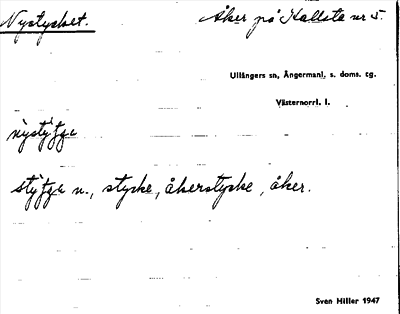 Nystycket.
Åker på Kallsta nr 5.
Ullångers sn, Ångermanl. s. doms. tg.
Västernorrl. l.
n., stycke, åkerstycke, åker.
Sven Hiller 1947